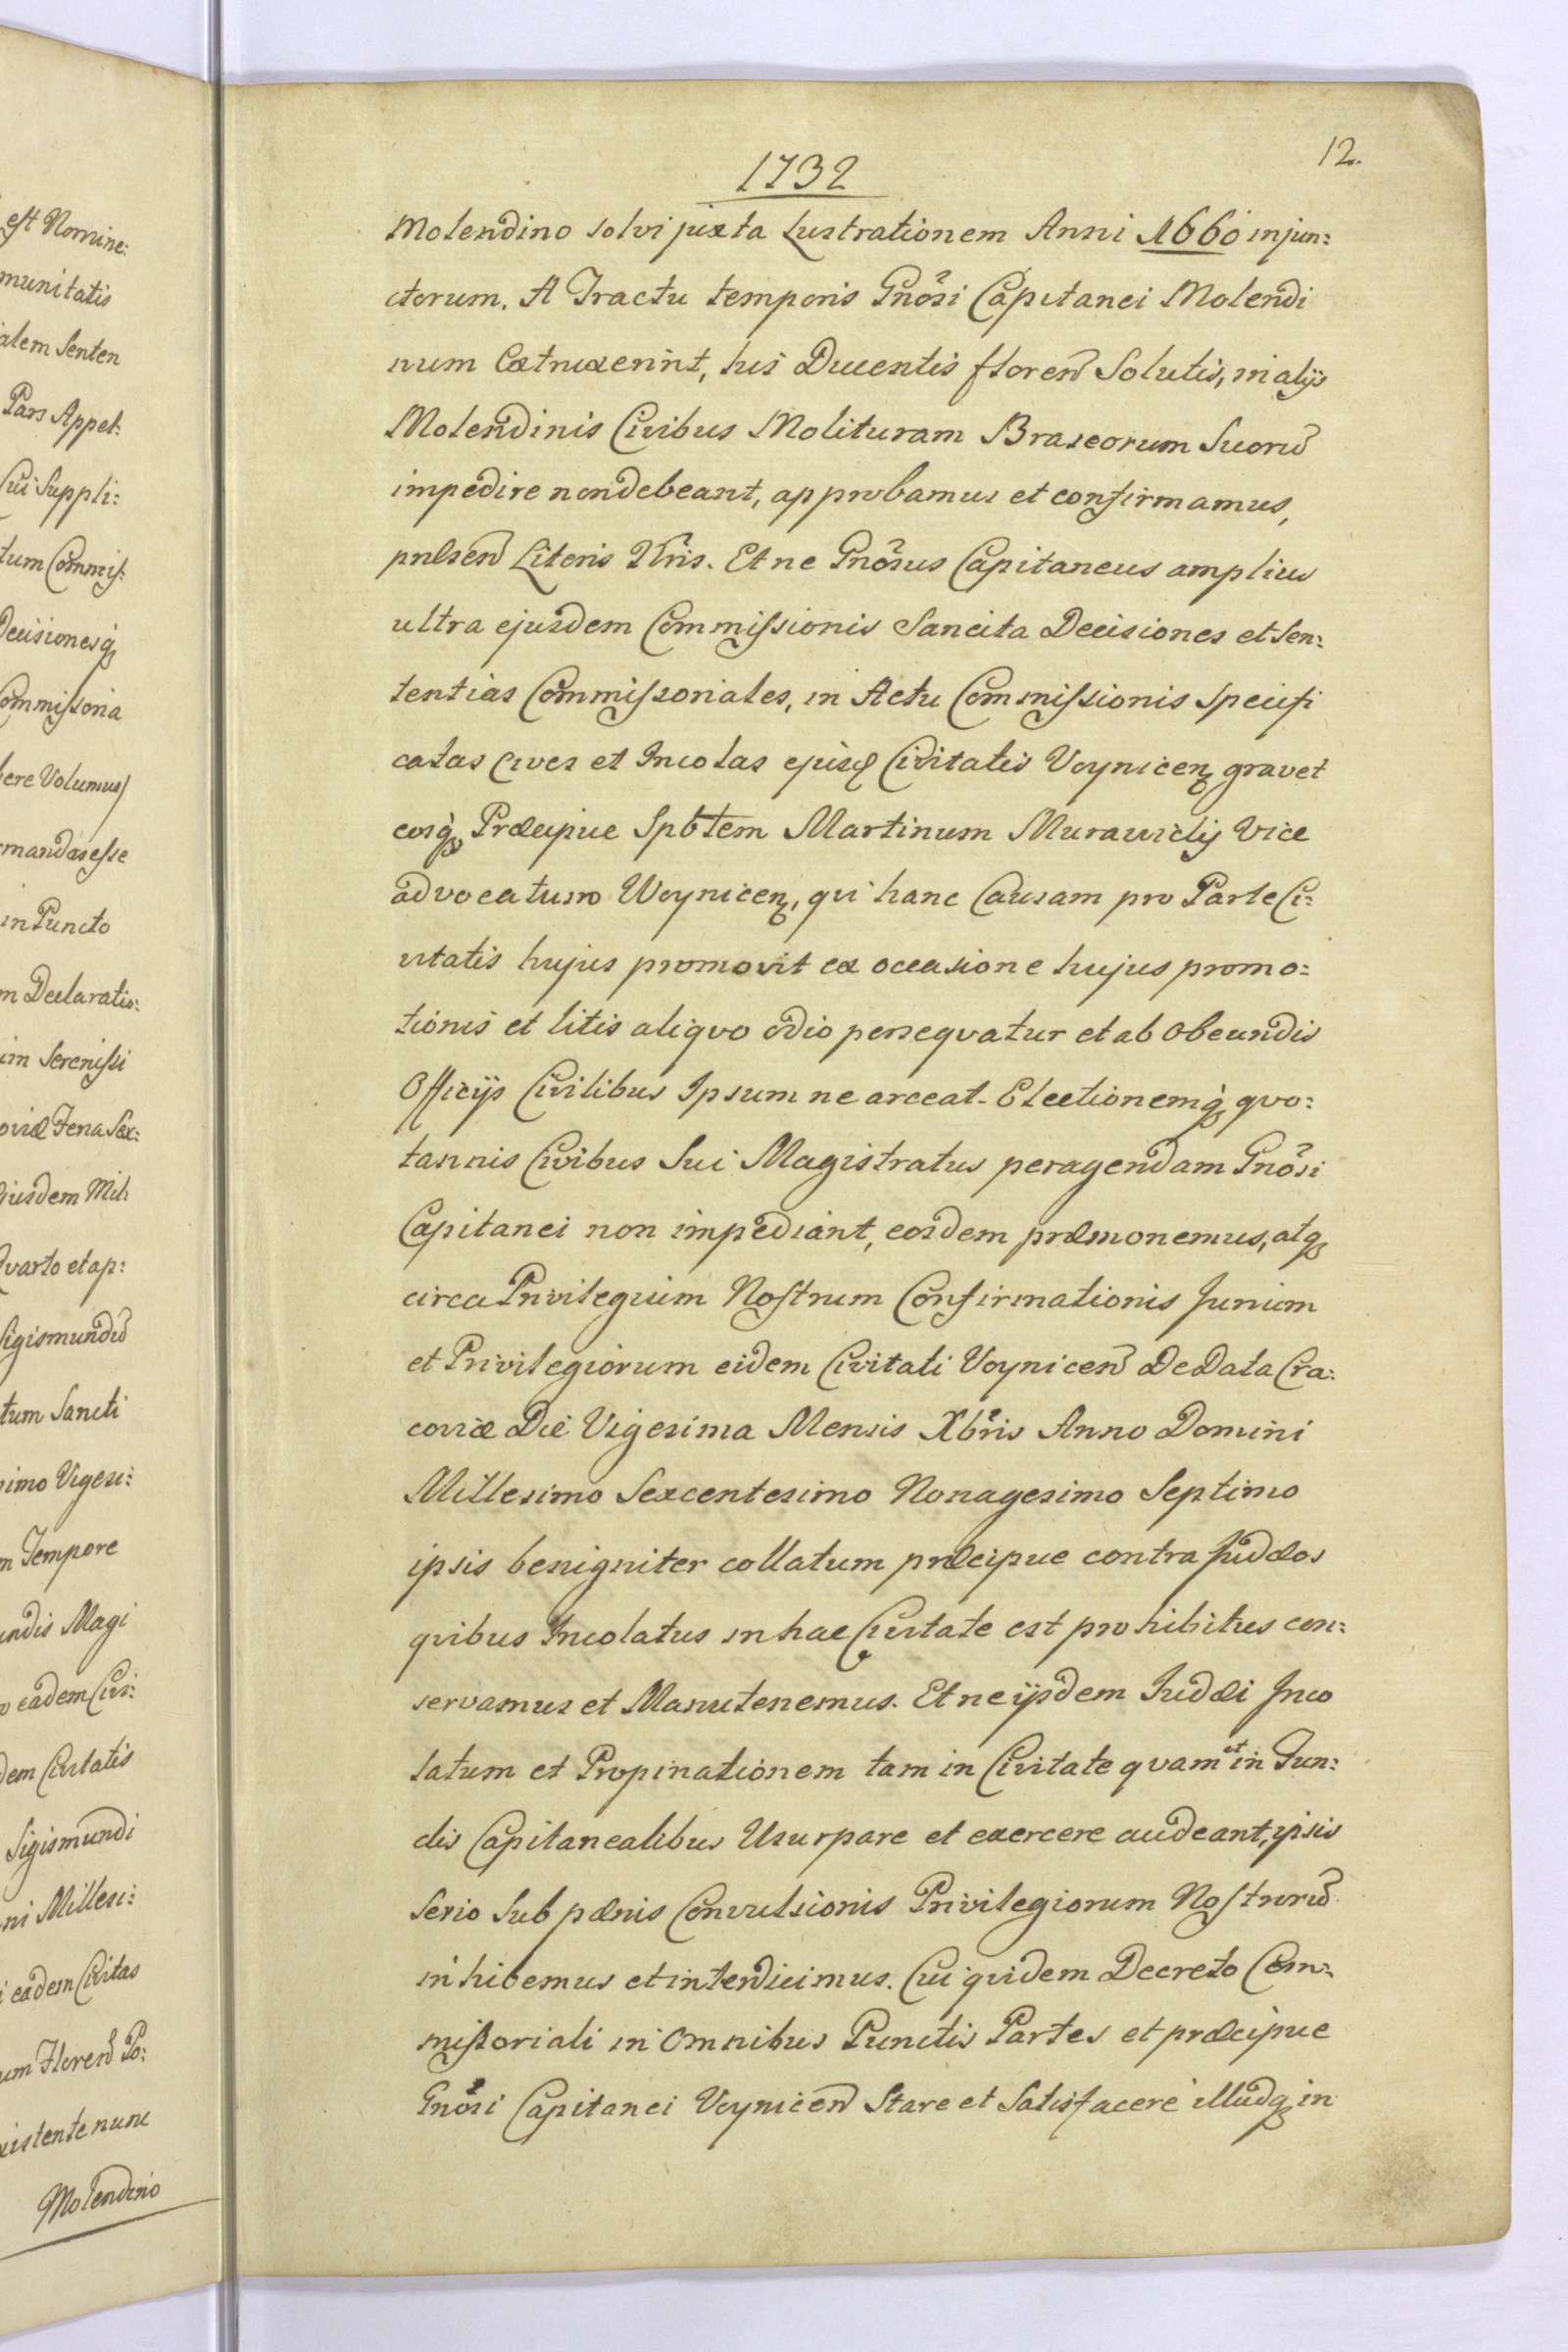 est Nomine:
munitatis
alem Senten
Pars Appel:
Cui Suppli:
tum Commis:
Decisionesq;
Commissoria
bere Volumus
mandas esse
in Puncto
m Declaratio:
im Serenissi
oviæ Feria Sex:
Ejusdem Mil:
Qvarto et ap:
Sigismundũ
tum Sancti
simo Vigesi:
m Tempore
undis Magi
o eadem Civi:
dem Civitatis
Sigismundi
ni Millesi:
i eadem Civitas
um Floreñ Po:
existente nunc
Molendino
12.
1732
Molendino solvi juxta Lustrationem Anni 1660 injun:
ctorum. A Tractu temporis Gnõsi Capitanei Molendi
num Extruxerint, his Ducentis floreñ Solutis, in alijs
Molendinis Civibus Molituram Braseorum Suorũ
impedire non debeant, approbamus et confirmamus,
præseñ Literis Nris. Et ne Gnõsus Capitaneus amplius
ultra ejusdem Commissionis Sancita Decisiones et Sen:
tentias Commissoriales, in Actu Commissionis Specifi
catas Cives et Incolas ejusd Civitatis Voynicen; gravet
eosq; Præcipue Spbtem Martinum Murawicky Vice
advocatum Woynicen;, qvi hanc Causam pro Parte Ci:
vitatis hujus promovit ex occasione hujus promo:
tionis et litis aliqvo odio perseqvatur et ab obeundis
Officijs Civilibus Ipsum ne arceat. Electionemq; qvo:
tannis Civibus Sui Magistratus peragendam Gnõsi
Capitanei non impediant, eosdem præmonemus, atq;
circa Privilegium Nostrum Confirmationis Jurium
et Privilegiorum eidem Civitati Voyniceñ De Data Cra:
coviæ Die Vigesima Mensis Xbris Anno Domini
Millesimo Sexcentesimo Nonagesimo Septimo
ipsis benigniter collatum præcipue contra Judæos
qvibus Incolatus in hac Civitate est prohibitus con:
servamus et Manutenemus. Et ne ijsdem Judæi Inco
latum et Propinationem tam in Civitate qvam et in Fun:
dis Capitanealibus Usurpare et exercere audeant, ipsis
Serio Sub pænis Convulsionis Privilegiorum Nostrorũ
inhibemus et interdicimus. Cui qvidem Decreto Com:
missoriali in Omnibus Punctis Partes et præcipue
Gnõsi Capitanei Voyniceñ Stare et Satisfacere illudq; in